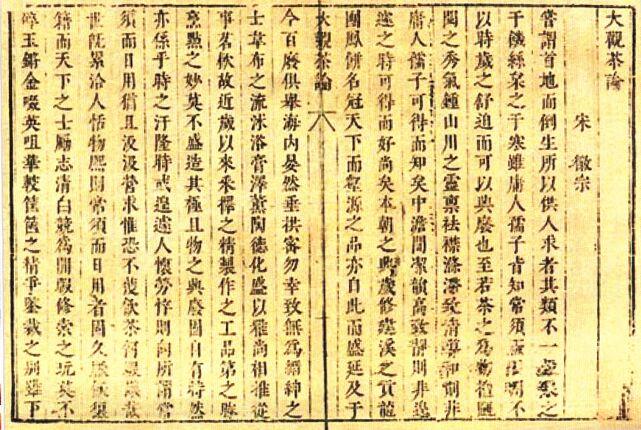 大觀茶論
宋 徽宗
嘗謂首地而倒生所以供人求者其類不一穀粟之
于饑絲枲之于寒雖庸人孺子皆知常須而日用不
以時歲之舒迫而可以興廢也至若茶之為物擅甌
閩之秀氣鍾山川之靈禀祛襟滌滯致清導和則非
庸人孺子可得而知矣中澹間潔韻高致靜則非遑
遽之時可得而好尚矣本朝之興歲修建溪之貢龍
團鳳餅名冠天下而壑源之品亦自此而盛延及于
大觀茶論 八
今百廢俱舉海内晏然垂拱密勿幸致無為縉紳之
士韋布之流沐浴膏澤薰陶德化盛以雅尚相推從
事茗飲故近歲以來采擇之精製作之工品第之勝
烹點之妙莫不盛造其極且物之興廢固自有時然
亦係乎時之汙隆時或遑遽人懷勞悴則向所謂常
須而日用猶且汲汲營求惟恐不獲飲茶何暇議哉
世既累洽人恬物熙則常須而日用者固久厭飫狼
籍而天下之士勵志清白競為閒暇修索之玩莫不
碎玉鏘金啜英咀華較筐篋之精爭鑒裁之別雖下